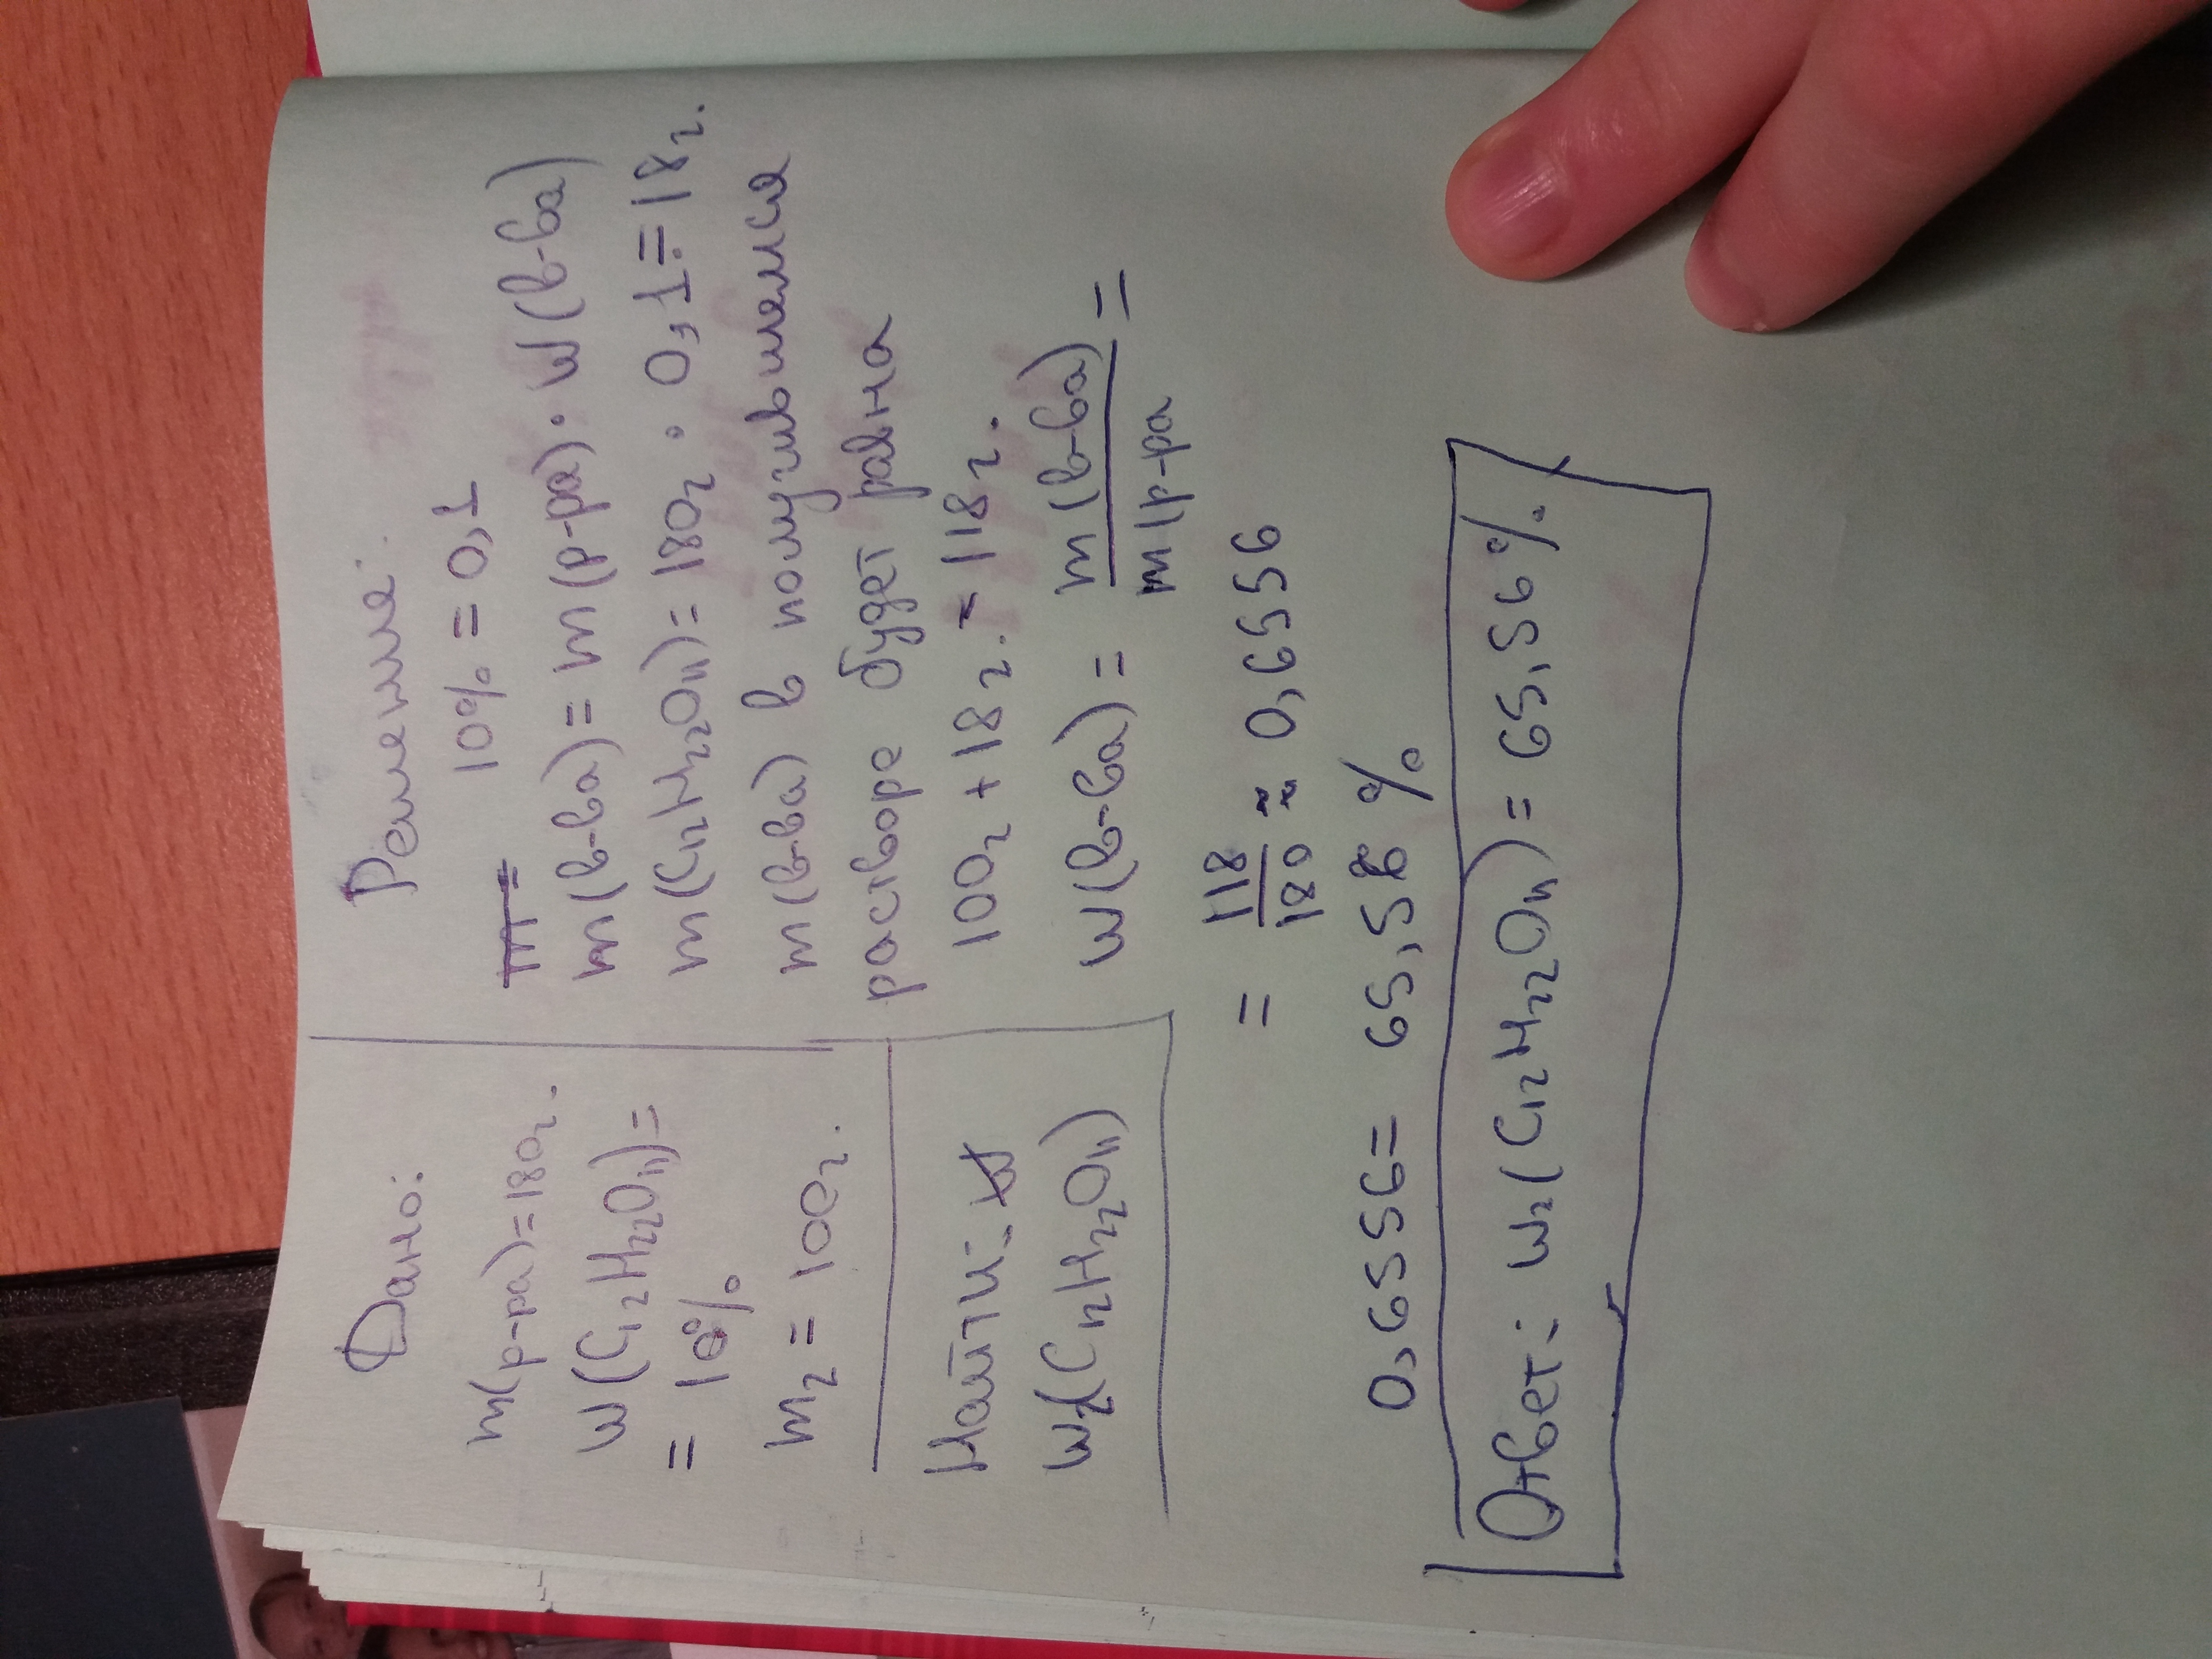 Дано:
m(р-ра)=180г.
w(C₁₂H₂₂O₁₁)=
= 10%
m₂ = 100г.
Найти:
w₂(C₁₂H₂₂O₁₁)
Решение:
10% = 0,1
m=
m(в-ва) = m(р-ра) · w(в-ва)
m(C₁₂H₂₂O₁₁) = 180г · 0,1 = 18г.
m(в-ва) в получившемся
растворе будет равна
100г + 18г. = 118г.
w(в-ва) = m(в-ва)/m(р-ра =
= 118/180 ≈ 0,6556
0,6556 = 65,56 %
Ответ: w₂(C₁₂H₂₂O₁₁) = 65,56%